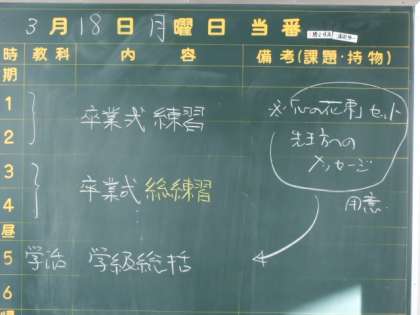 3月18日月曜日当番
時期 教科 内容 備考(課題・持物)
1
2 卒業式 練習
※「心の花束」セット
先生方への
メッセージ
用意
3
4 卒業式 総練習
昼
5 学活 学級総括
6